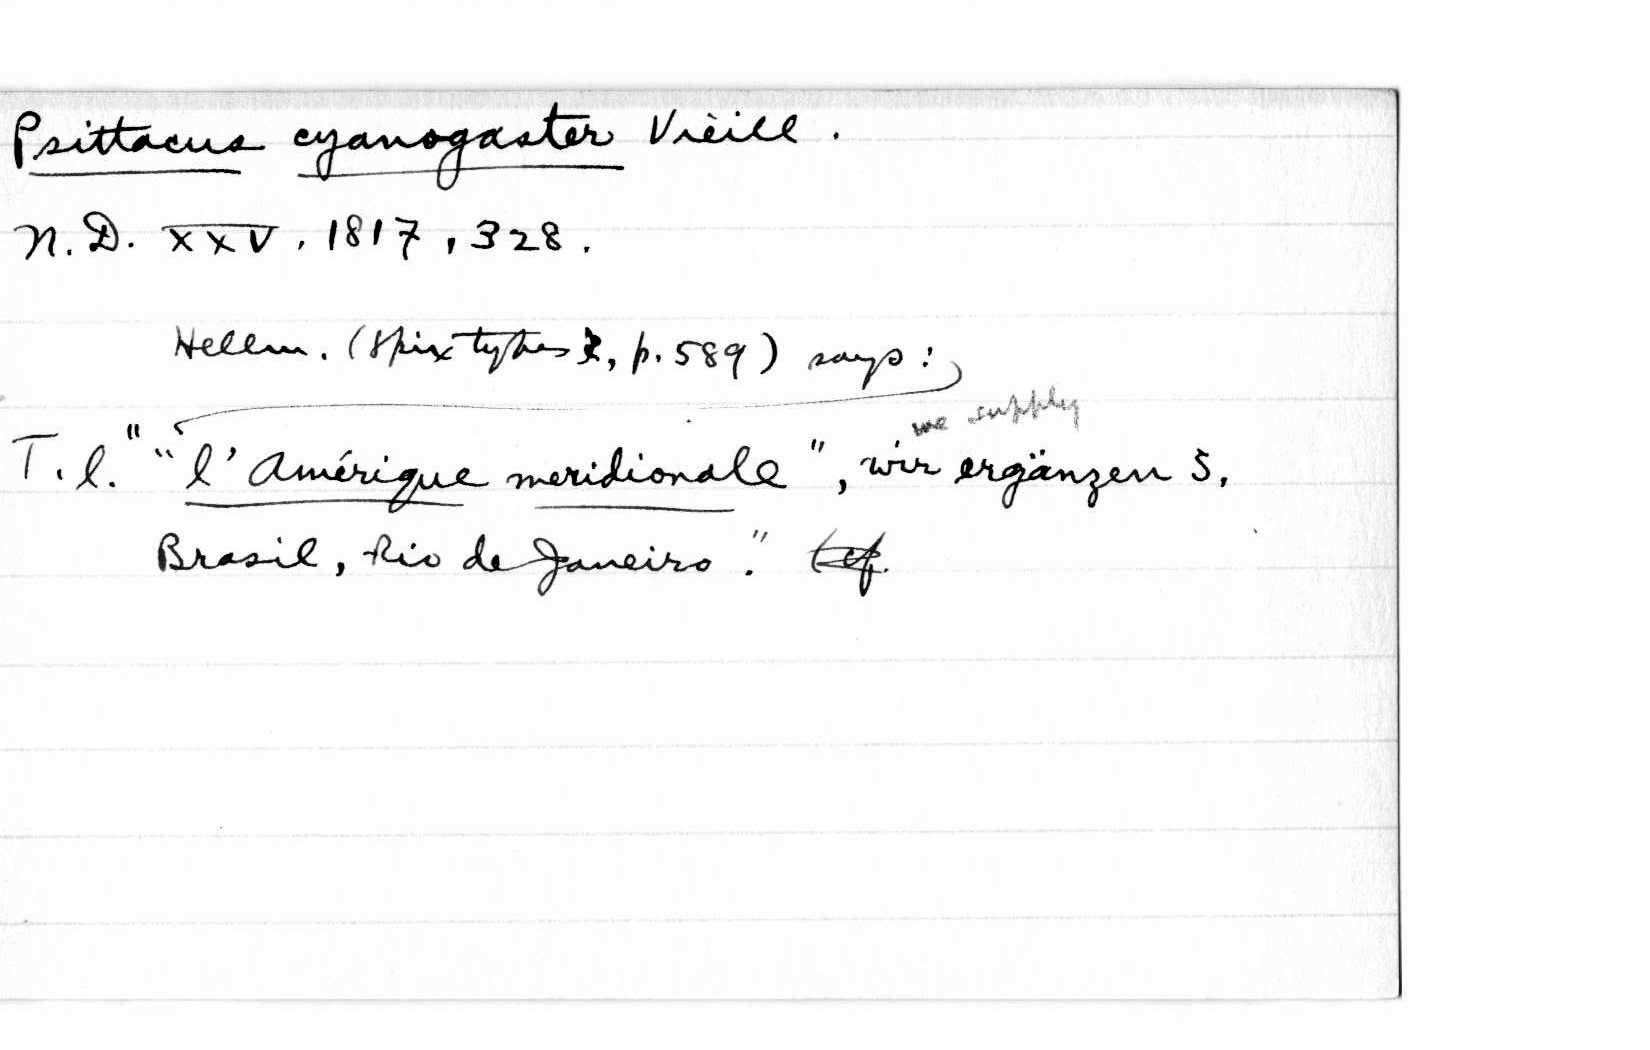 Psittacus cyanogaster Vieill.
N.D. XXV, 1817, 328.
Hellm. (Spix types, p. 589) says:
we supply
T.l. " "l'Amérique meridionale", wir ergänzen S.
Brasil, Rio de Janeiro." (cf.